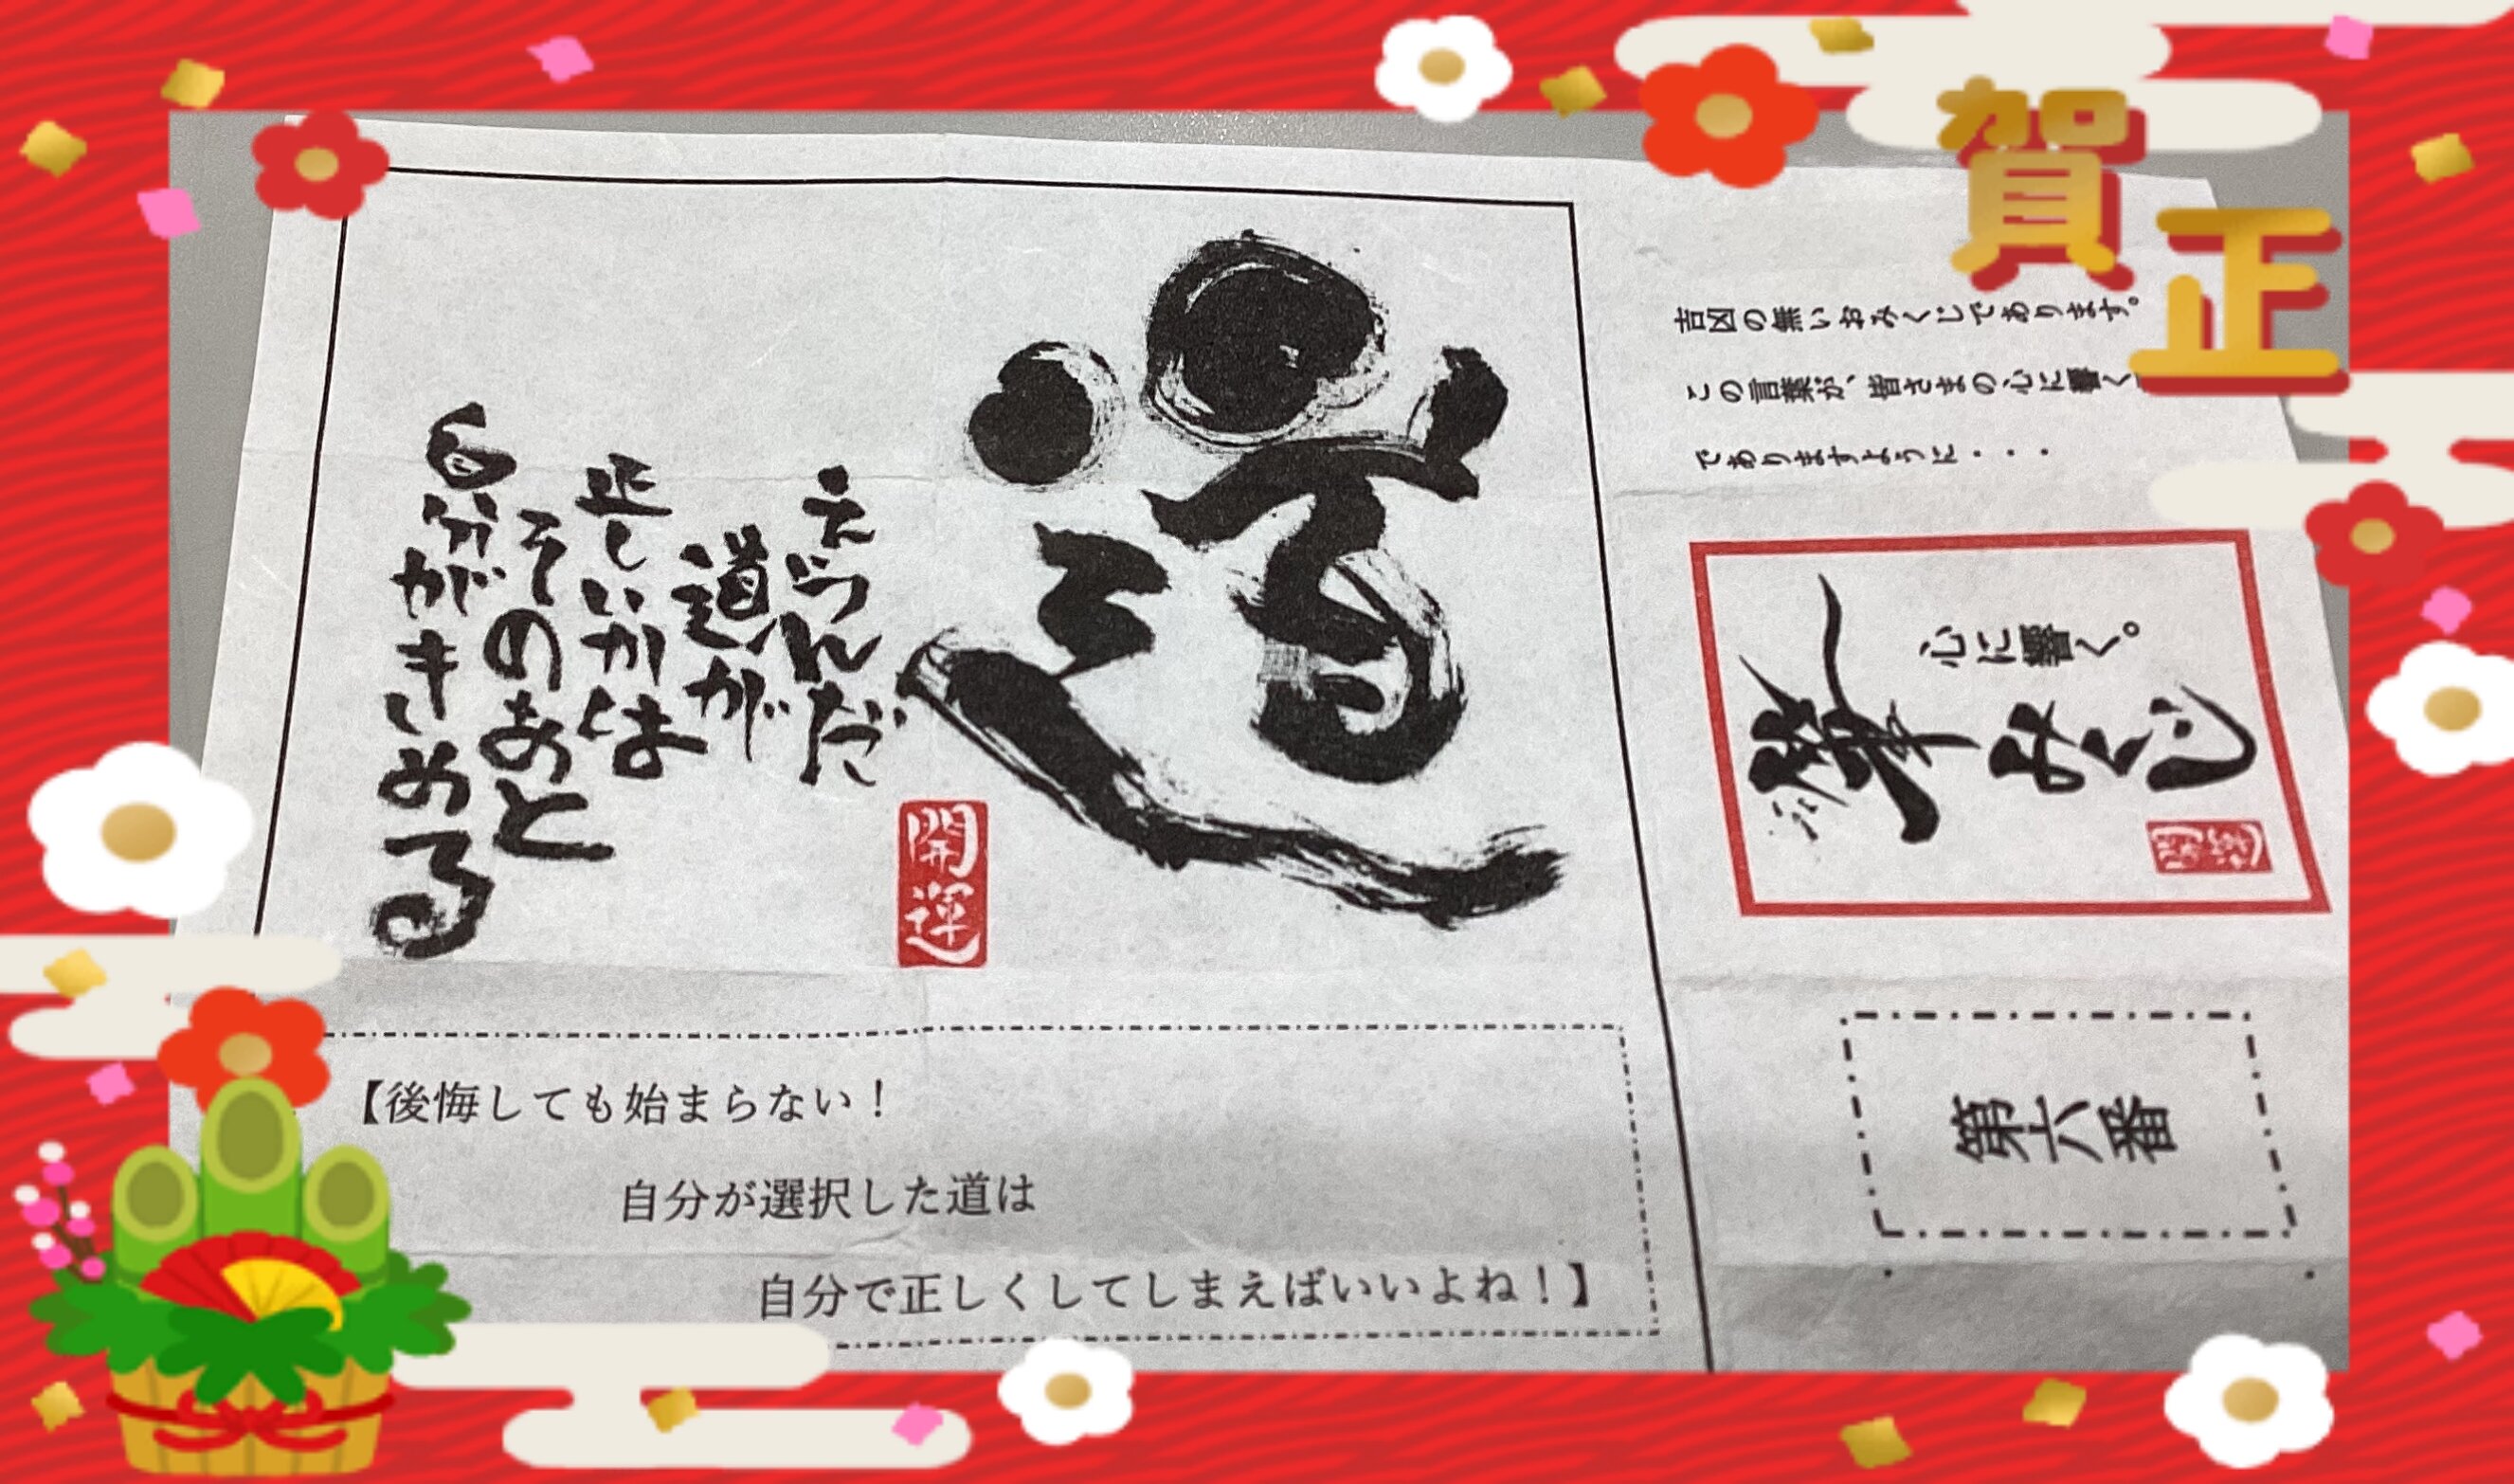 賀正
吉凶の無いおみくじであります。
この言葉が、皆さまの心に響く
でありますように・・・
心に響く。
筆みくじ
開運
第六番
道
えらんだ
道が
正しいかは
そのあと
自分がきめる
開運
【後悔しても始まらない！
自分が選択した道は
自分で正しくしてしまえばいいよね！】